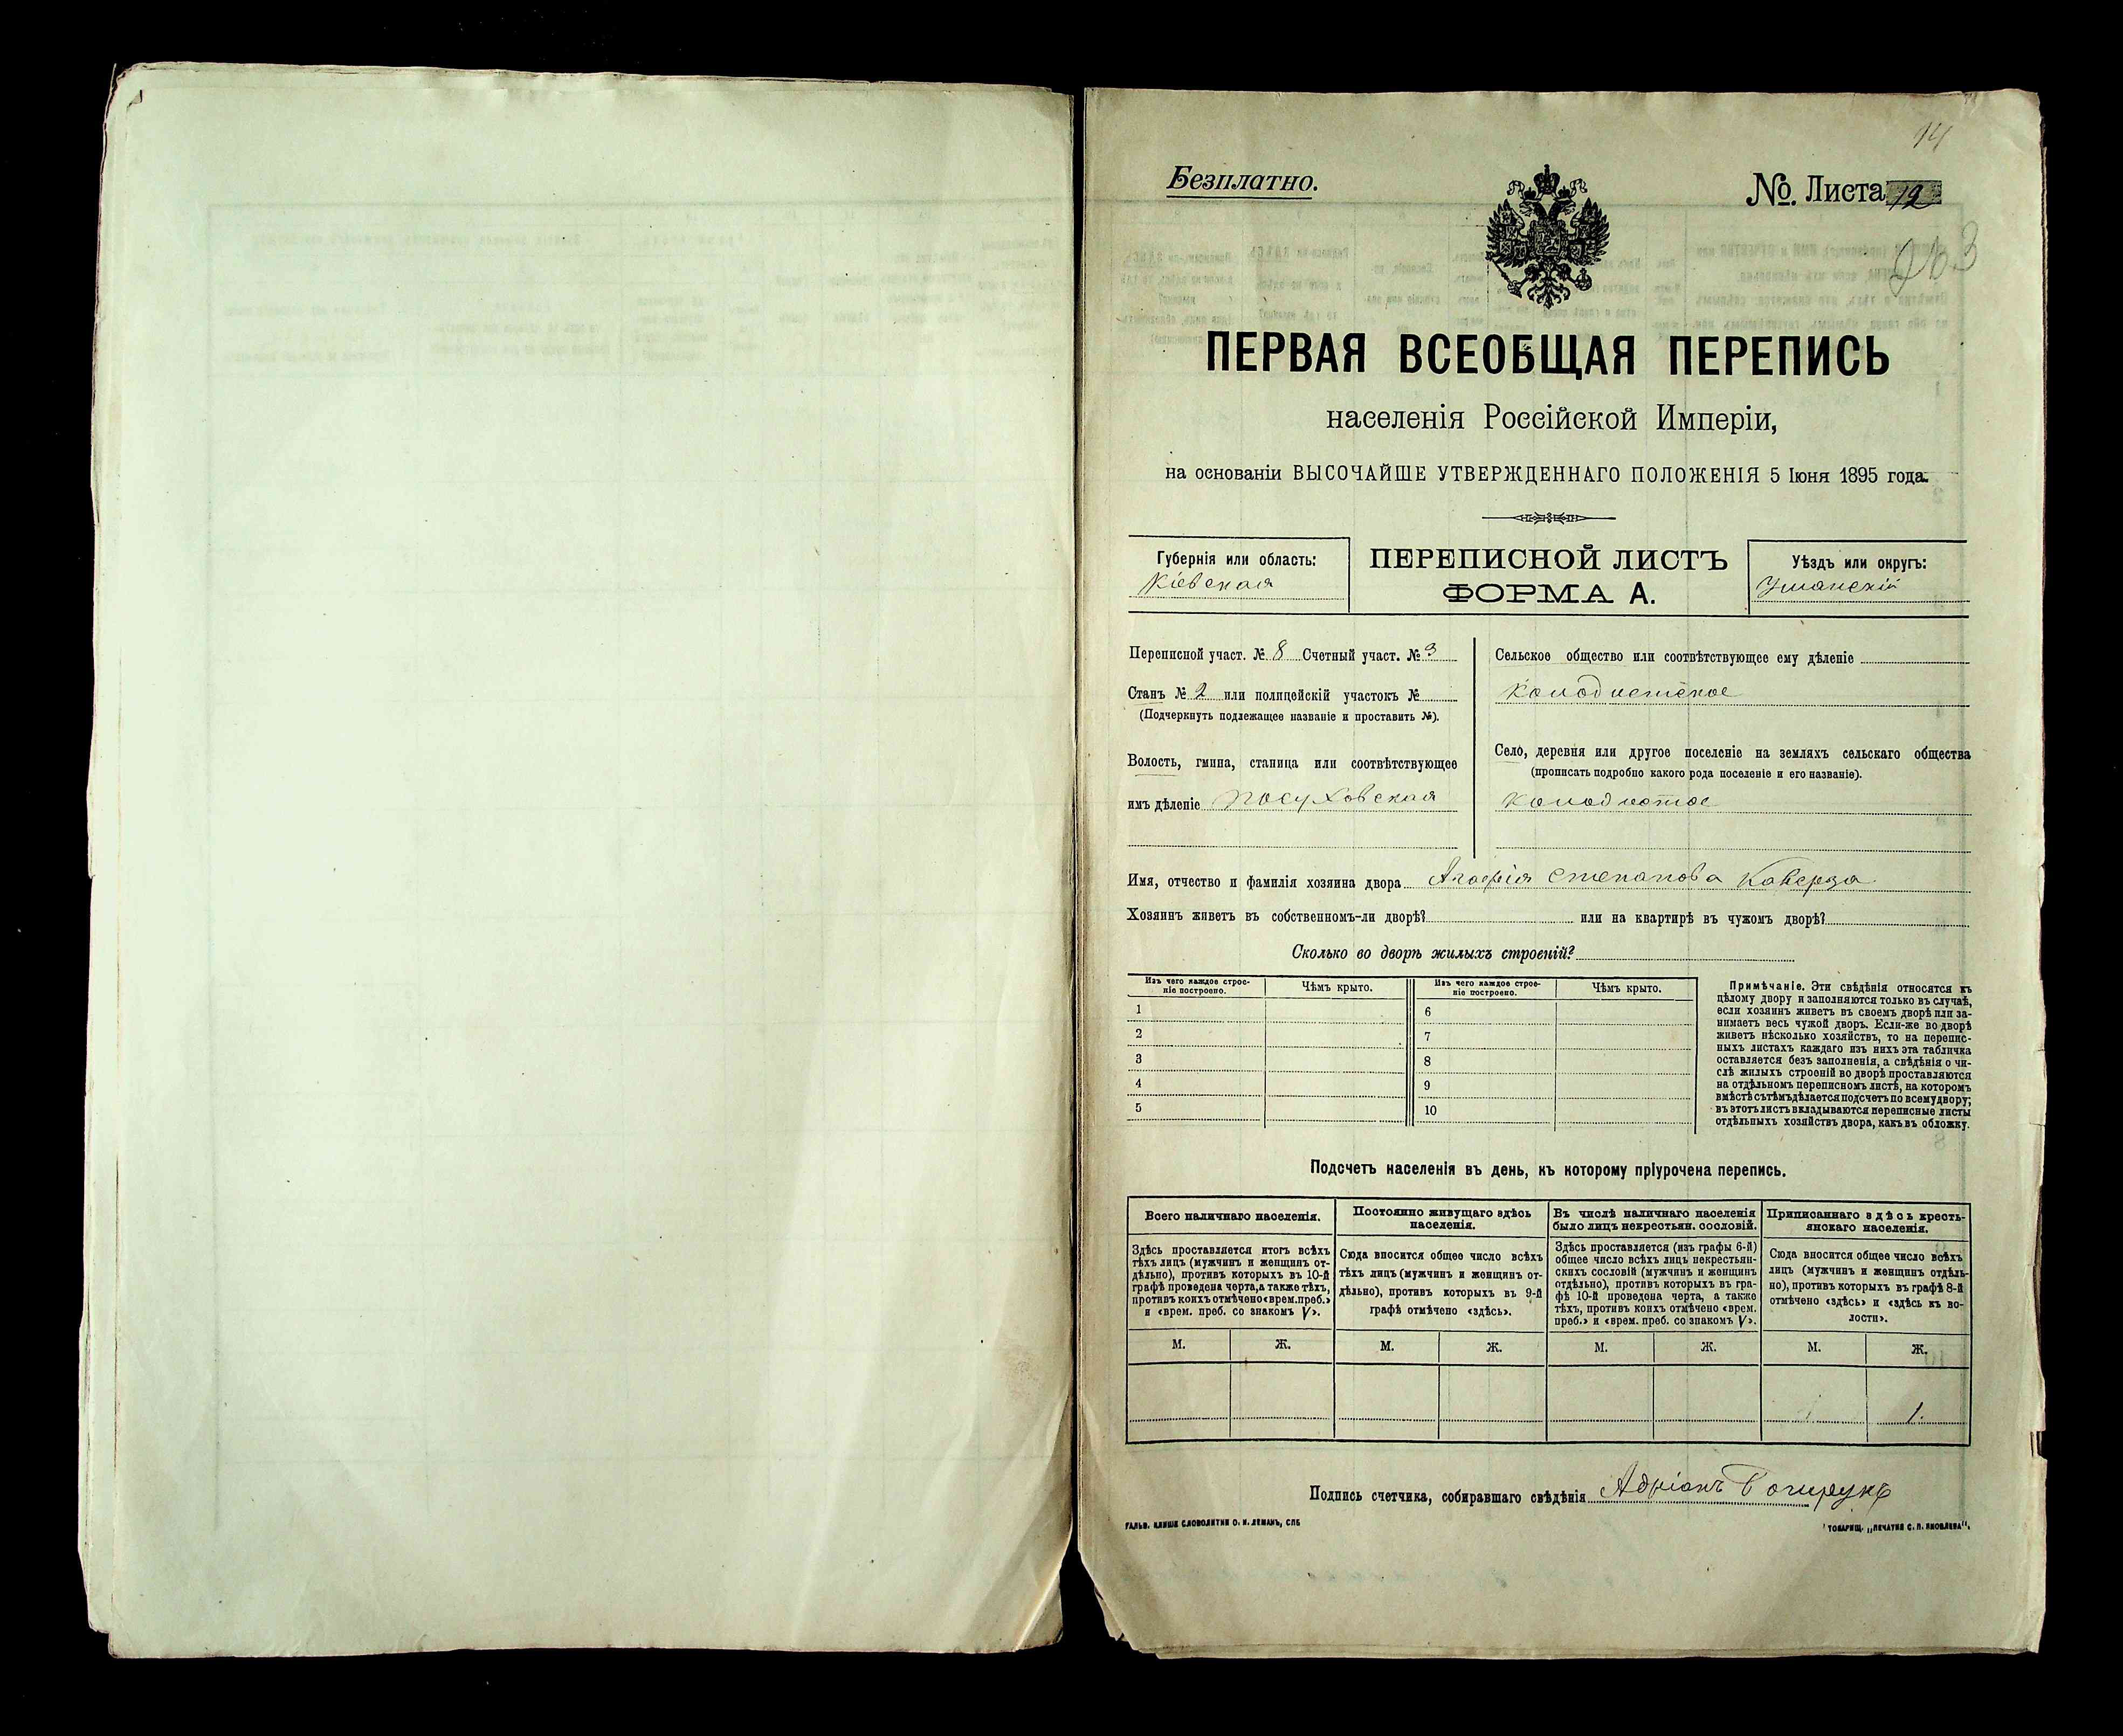 14
Безплатно.
№. Листа 12
ПЕРВАЯ ВСЕОБЩАЯ ПЕРЕПИСЬ
населенія Россійской Имперіи,
на основаніи ВЫСОЧАЙШЕ УТВЕРЖДЕННАГО ПОЛОЖЕНІЯ 5 Іюня 1895 года.
Губернія или область:
Кіевская
ПЕРЕПИСНОЙ ЛИСТЪ
ФОРМА А.
Уѣздъ или округъ:
Уманскій
Переписной участ. № 8 Счетный участ. № 3
Станъ № 2 или полицейскій участокъ №
(Подчеркнуть подлежащее названіе и проставить №).
Волость, гмина, станица или соотвѣтствующее
имъ дѣленіе Посуховская
Сельское общество или соотвѣтствующее ему дѣленіе
Колодистское
Село, деревня или другое поселеніе на земляхъ сельскаго общества
(прописать подробно какого рода поселеніе и его названіе).
Колодистое
Имя, отчество и фамилія хозяина двора Агафія Степанова Каверза
Хозяинъ живетъ въ собственномъ-ли дворѣ? или на квартирѣ въ чужомъ дворѣ?
Сколько во дворѣ жилыхъ строеній?
Изъ чего каждое строе-
ніе построено.
Чѣмъ крыто.
Изъ чего каждое строе-
ніе построено.
Чѣмъ крыто.
1
2
3
4
5
6
7
8
9
10
Примѣчаніе. Эти свѣдѣнія относятся къ
цѣлому двору и заполняются только въ случаѣ,
если хозяинъ живетъ въ своемъ дворѣ или за-
нимаетъ весь чужой дворъ. Если-же во дворѣ
живетъ нѣсколько хозяйствъ, то на перепис-
ныхъ листахъ каждаго изъ нихъ эта табличка
оставляется безъ заполненія, а свѣдѣнія о чи-
слѣ жилыхъ строеній во дворѣ проставляются
на отдѣльномъ переписномъ листѣ, на которомъ
вмѣстѣ съ тѣмъ дѣлается подсчетъ по всему двору;
въ этотъ листъ вкладываются переписные листы
отдѣльныхъ хозяйствъ двора, какъ въ обложку.
Подсчетъ населенія въ день, къ которому пріурочена перепись.
Всего наличнаго населенія.
Здѣсь проставляется итогъ всѣхъ
тѣхъ лицъ (мужчинъ и женщинъ от-
дѣльно), противъ которыхъ въ 10-й
графѣ проведена черта, а также тѣхъ,
противъ коихъ отмѣчено «врем. преб.»
и «врем. преб. со знакомъ V».
Постоянно живущаго здѣсь
населенія.
Сюда вносится общее число всѣхъ
тѣхъ лицъ (мужчинъ и женщинъ от-
дѣльно), противъ которыхъ въ 9-й
графѣ отмѣчено «здѣсь».
Въ числѣ наличнаго населенія
было лицъ некрестьян. сословій.
Здѣсь проставляется (изъ графы 6-й)
общее число всѣхъ лицъ некрестьян-
скихъ сословій (мужчинъ и женщинъ
отдѣльно), противъ которыхъ въ гра-
фѣ 10-й проведена черта, а также
тѣхъ, противъ коихъ отмѣчено «врем.
преб.» и «врем. преб. со знакомъ V».
Приписаннаго здѣсь кресть-
янскаго населенія.
Сюда вносится общее число всѣхъ
лицъ (мужчинъ и женщинъ отдѣль-
но), противъ которыхъ въ графѣ 8-й
отмѣчено «здѣсь» и «здѣсь къ во-
лости».
М. Ж. М. Ж. М. Ж. М. Ж.
1.
Подпись счетчика, собиравшаго свѣдѣнія Адріанъ
ГАЛЬВ. КЛИШЕ СЛОВОЛИТНИ О. И. ЛЕМАНЪ, СПБ
ТОВАРИЩ. „ПЕЧАТНЯ С. П. ЯКОВЛЕВА“.